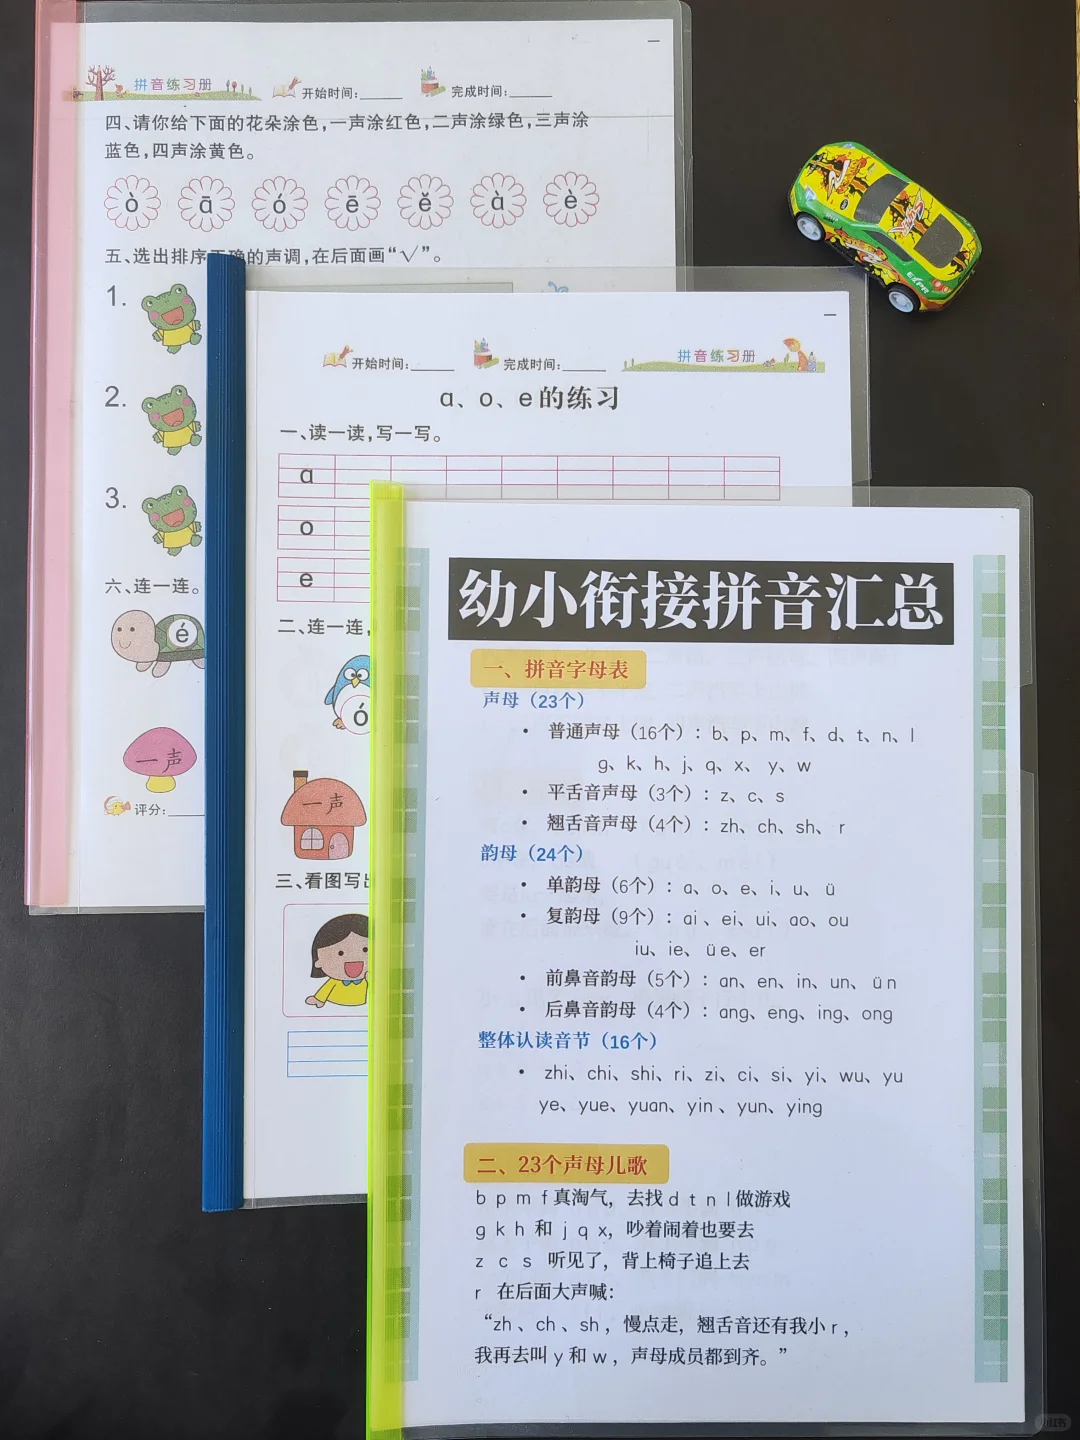 拼音练习册 开始时间:______ 完成时间:______
四、请你给下面的花朵涂色,一声涂红色,二声涂绿色,三声涂
蓝色,四声涂黄色。
ò ā ó ē ě à è
五、选出排序正确的声调,在后面画“√”。
1.
2.
3.
六、连一连。
é
一声
评分:____
开始时间:______ 完成时间:______ 拼音练习册
a、o、e的练习
一、读一读,写一写。
a
o
e
二、连一连,
ó
一声
三、看图写出
幼小衔接拼音汇总
一、拼音字母表
声母(23个)
• 普通声母(16个):b、p、m、f、d、t、n、l
g、k、h、j、q、x、y、w
• 平舌音声母(3个):z、c、s
• 翘舌音声母(4个):zh、ch、sh、r
韵母(24个)
• 单韵母(6个):a、o、e、i、u、ü
• 复韵母(9个):ai、ei、ui、ao、ou
iu、ie、üe、er
• 前鼻音韵母(5个):an、en、in、un、ün
• 后鼻音韵母(4个):ang、eng、ing、ong
整体认读音节(16个)
• zhi、chi、shi、ri、zi、ci、si、yi、wu、yu
ye、yue、yuan、yin、yun、ying
二、23个声母儿歌
b p m f 真淘气，去找 d t n l 做游戏
g k h 和 j q x，吵着闹着也要去
z c s 听见了，背上椅子追上去
r 在后面大声喊：
“zh、ch、sh，慢点走，翘舌音还有我小 r，
我再去叫 y 和 w，声母成员都到齐。”